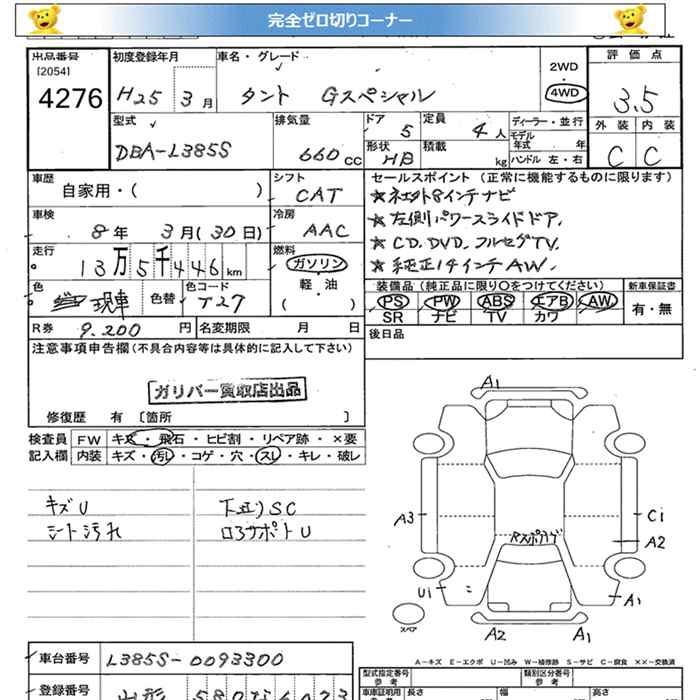 完全ゼロ切りコーナー
出品番号
[2054]
4276
初度登録年月
H25 3月
車名・グレード
タント Gスペシャル
2WD
・
4WD
評価点
3.5
外装 内装
C C
型式
DBA-L385S
排気量
660 CC
ドア
5
形状
HB
定員
4人
積載
kg
ディーラー・並行
モデル
年式 年
ハンドル 左・右
車歴
自家用・( )
シフト
CAT
車検
8年 3月(30日)
冷房
AAC
走行
13万5千446km
燃料
ガソリン
・
軽・油
( )
色
現車
色替
色コード
T27
R券 9.200 円
名変期限 月 日
セールスポイント (正常に機能するものに限ります)
★社外8インチナビ
★左側パワースライドドア.
★CD.DVD.フルセグTV.
★純正14インチAW.
装備品(純正品に限り〇をつけてください)
新車保証書
PS PW ABS エアB AW
SR ナビ TV カワ
有・無
後日品
注意事項申告欄(不具合内容等は具体的に記入して下さい)
ガリバー買取店出品
修復歴 有 〔箇所 〕
検査員
記入欄
FW キズ・飛石・ヒビ割・リペア跡・×要
内装 キズ・汚レ・コゲ・穴・スレ・キレ・破レ
キズU
シート汚れ
下廻りSC
ロアサポートU
A1
A3
Rスポイラゲ
Ci
A2
Ui
A1
スペア
A2
A1
A-キズ E-エクボ U-凹み W-補修跡 S-サビ C-腐食 ××-交換済
車台番号
L385S-0093300
登録番号
山形 580な6023
型式指定番号
参考
類別区分番号
参考
車庫証明用
長さ
幅
高さ